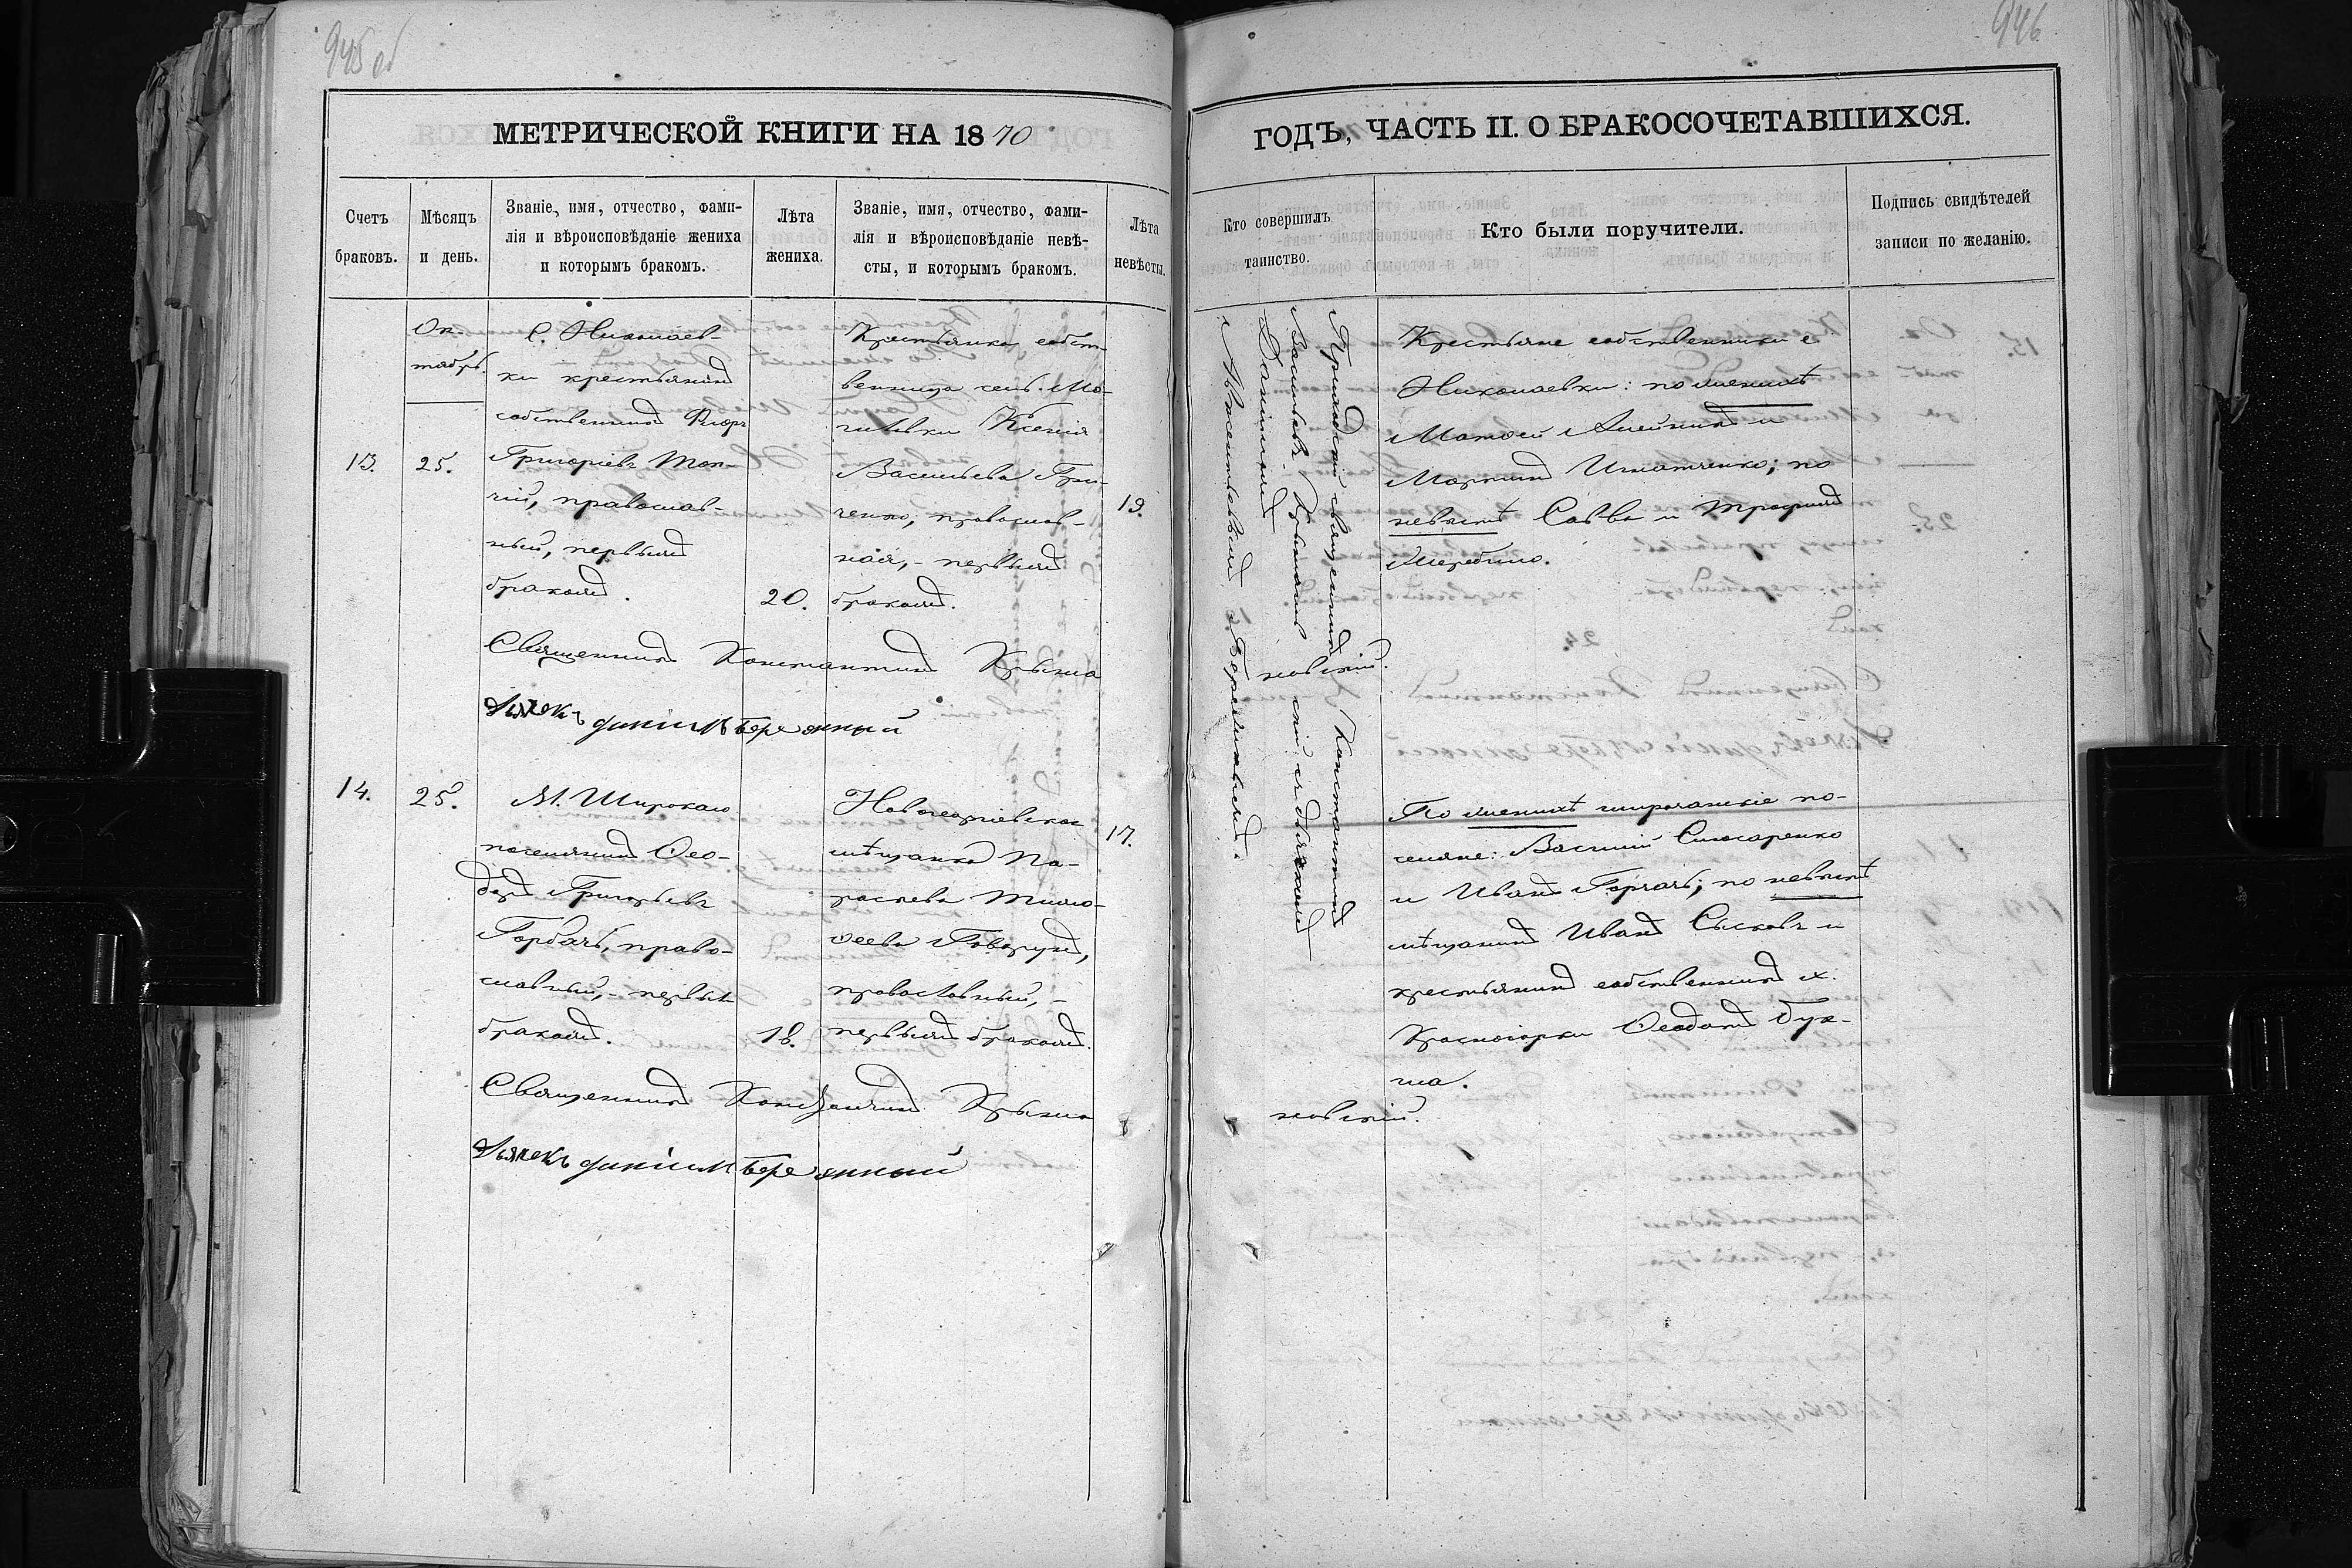 945 об
946
МЕТРИЧЕСКОЙ КНИГИ НА 1870
ГОДЪ, ЧАСТЬ II. О БРАКОСОЧЕТАВШИХСЯ.
Счетъ
браковъ.
Мѣсяцъ
и день.
Званіе, имя, отчество, фами-
лія и вѣроисповѣданіе жениха
и которымъ бракомъ.
Лѣта
жениха.
Званіе, имя, отчество, фами-
лія и вѣроисповѣданіе невѣ-
сты, и которымъ бракомъ.
Лѣта
невѣсты.
Кто совершилъ
таинство.
Кто были поручители.
Подпись свидѣтелей
записи по желанію.
13.
Ок-
тябрь.
25.
С. Николаев-
ки крестьянинъ
собственникъ
Григоріевъ
православ-
ный, первымъ
бракомъ.
20.
Крестьянка собст-
венница
Ксенія
Васильева Гри-
ченко, православ-
ная, - первымъ
бракомъ.
19.
Приходскій священникъ Константинъ
Васильевъ съ дьячкомъ
Даніиломъ
Крестьяне собственники с.
Николаевки: по женихѣ
Матѳей и
Игнатченко; по
невѣстѣ Савва и Трофимъ
Священникъ Константинъ Крыжа
новскій.
Дьячекъ Даніилъ Бережный
14.
25.
М. Широкаго
поселянинъ Ѳео-
доръ Григорьевъ
Горбачь, право-
славный, - первымъ
бракомъ.
18.
Новогеоргіевская
мѣщанка Па-
раскева Тимо-
ѳеева Говорунъ,
православный, -
первымъ бракомъ.
17.
По женихѣ широчанскіе по-
селяне: Василій Слюсаренко
и Иванъ Горбачь; по невѣстѣ
мѣщанинъ Иванъ Сысковъ и
крестьянинъ собственникъ х.
Красногорки
Священникъ Константинъ Крыжа
новскій.
Дьячекъ Даніилъ Бережный